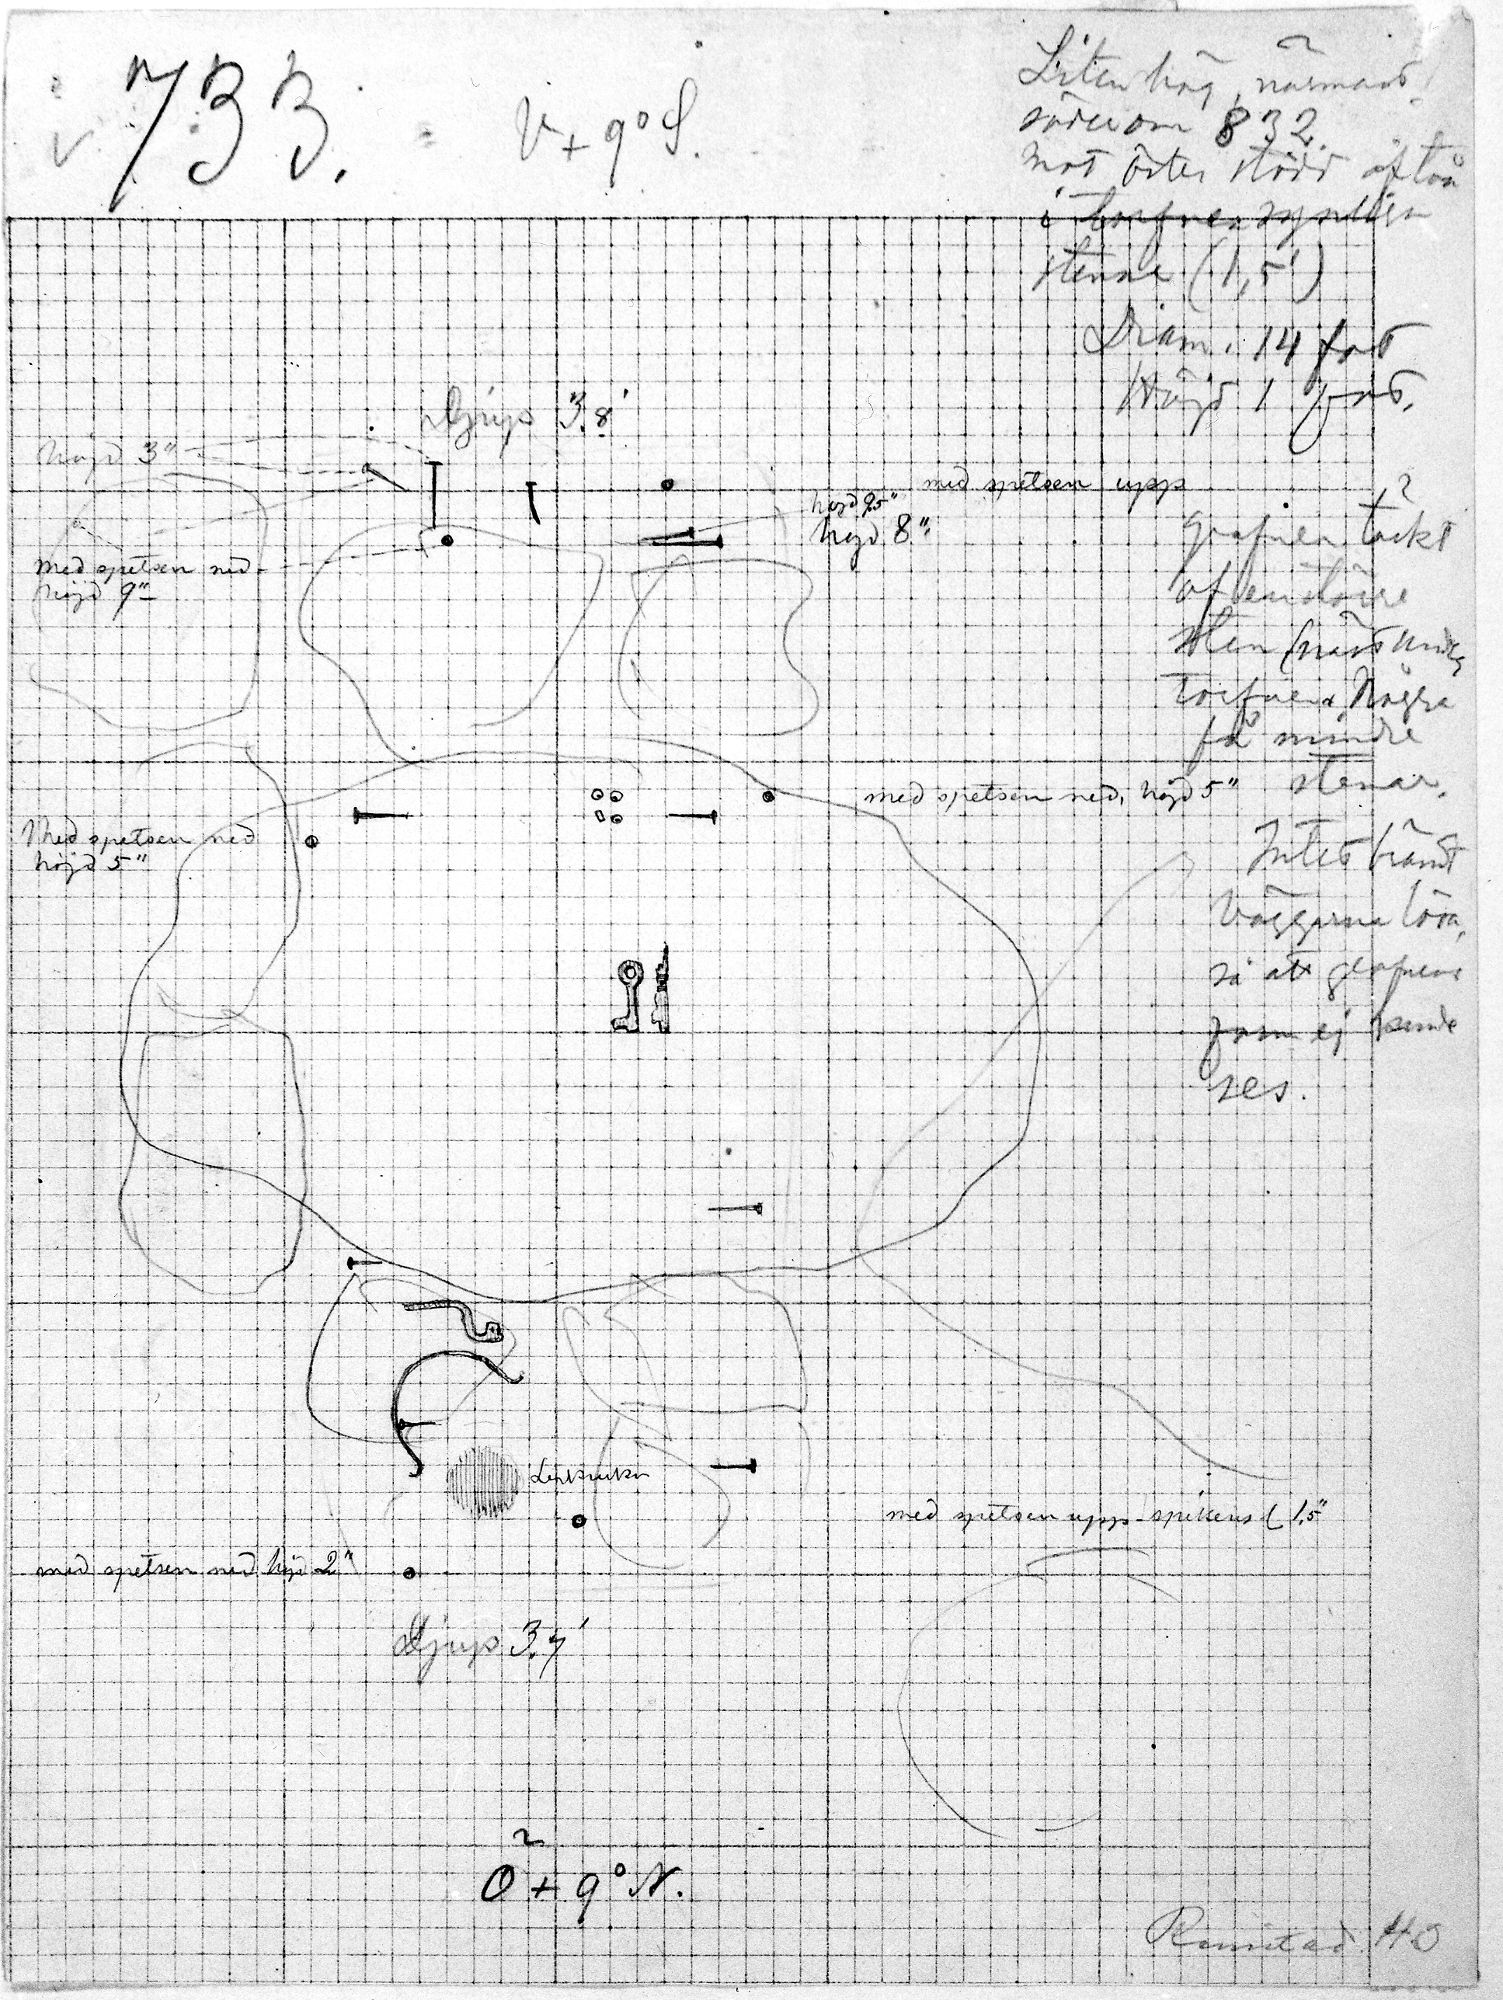 733.
V + 9° S.
Liten hög, närmast
söder om 832.
mot öster stödd af två
i torfven synliga
stenar (1,5')
Diam. 14 fot
Höjd 1 fot.
Djup 3.8'
höjd 3"
med spetsen upp
höjd 9.5"
höjd 8"
med spetsen ned
höjd 9"
Grafven täckt
af en större
sten (näst under
torfven. Några
få mindre
stenar.
med spetsen ned, höjd 5"
Med spetsen ned
höjd 5"
Intet brändt
Väggarne lösa,
så att grafvens
form ej kunde
ses.
Lerkruka
med spetsen upp - spikens L 1.5"
med spetsen ned, höjd 2"
Djup 3.7'
Ö + 9° N.